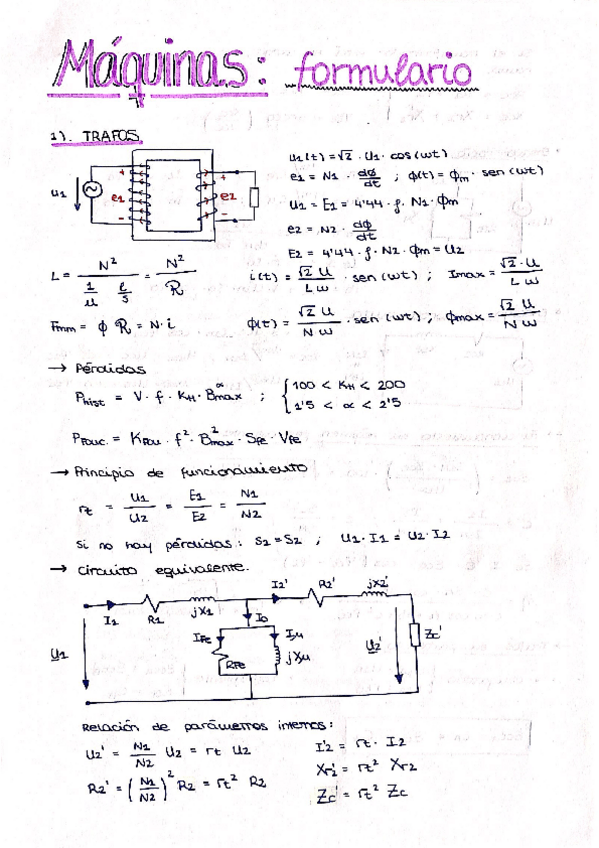 Máquinas: formulario
1). TRAFOS
u1(t) = √2 · U1 · cos(wt)
e1 = N1 · dϕ/dt ; ϕ(t) = ϕm · sen(wt)
U1 = E1 = 4'44 · f · N1 · ϕm
e2 = N2 · dϕ/dt
E2 = 4'44 · f · N2 · ϕm = U2
u1 e1 + - e2 + -
L = N² / (1/u · l/S) = N²/R
i(t) = √2 U / L w · sen(wt) ; Imax = √2 · U / L w
Fmm = ϕ R = N · i
ϕ(t) = √2 U / N w · sen(wt) ; ϕmax = √2 U / N w
→ Pérdidas
Phist = V · f · KH · Bmax^α ; { 100 < KH < 200
1'5 < α < 2'5
PFouc. = KFou · f² · B²max · SFe · VFe
→ Principio de funcionamiento
rt = U1/U2 = E1/E2 = N1/N2
si no hay pérdidas: S2 = S2 ; U1 · I1 = U2 · I2
→ Circuito equivalente.
I1 R1 jX1 I2' R2' jX2'
Io
IFe Iu
U1 RFe jXu U2' Zc'
Relación de parámetros internos:
U2' = N1/N2 U2 = rt U2
I'2 = rt · I2
R2' = (N1/N2)² R2 = rt² R2
Xr2' = rt² Xr2
Zc' = rt² Zc